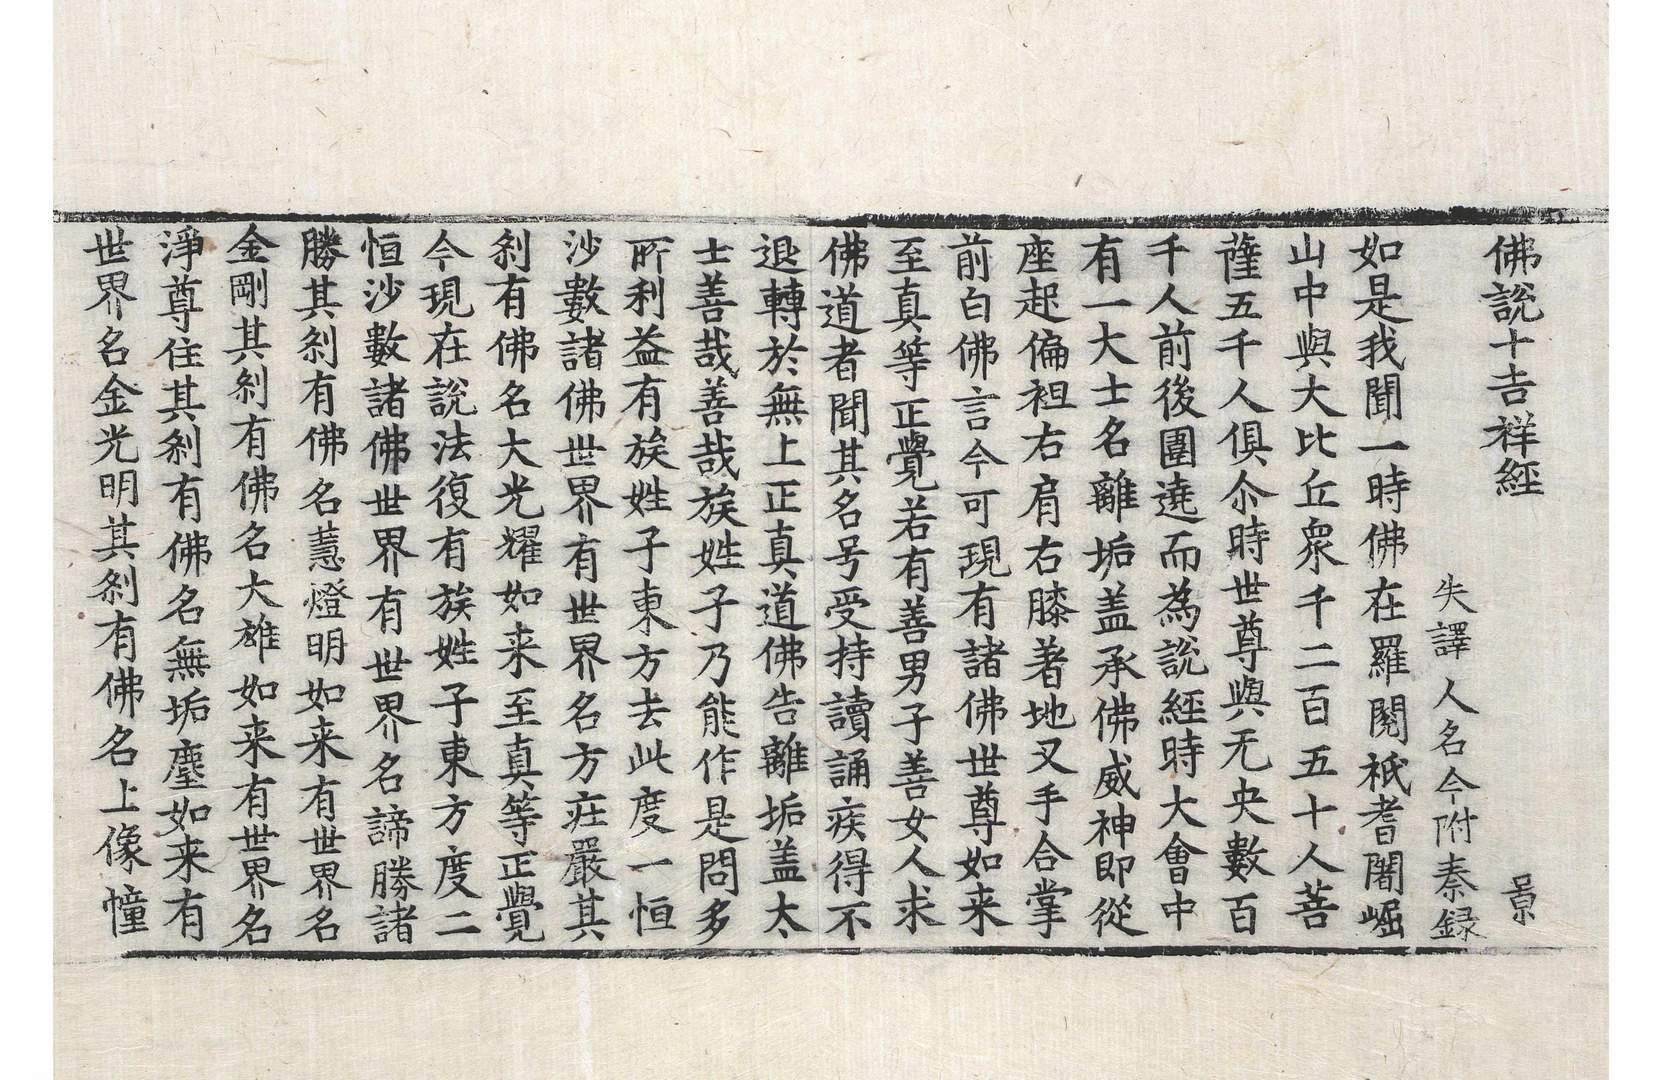 佛說十吉祥經 景
失譯人名今附秦録
如是我聞一時佛在羅閱祇耆闍崛
山中與大比丘衆千二百五十人菩
薩五千人俱尒時世尊與无央數百
千人前後圍遶而為説經時大會中
有一大士名離垢盖承佛威神即從
座起偏袒右肩右膝著地叉手合掌
前白佛言今可現有諸佛世尊如来
至真等正覺若有善男子善女人求
佛道者聞其名号受持讀誦疾得不
退轉於無上正真道佛告離垢盖大
士善哉善哉族姓子乃能作是問多
所利益有族姓子東方去此度一恒
沙數諸佛世界有世界名方莊嚴其
刹有佛名大光耀如来至真等正覺
今現在説法復有族姓子東方度二
恒沙數諸佛世界有世界名諦勝諸
勝其刹有佛名慧燈明如来有世界名
金剛其刹有佛名大雄如来有世界名
淨尊住其刹有佛名無垢塵如来有
世界名金光明其刹有佛名上像幢